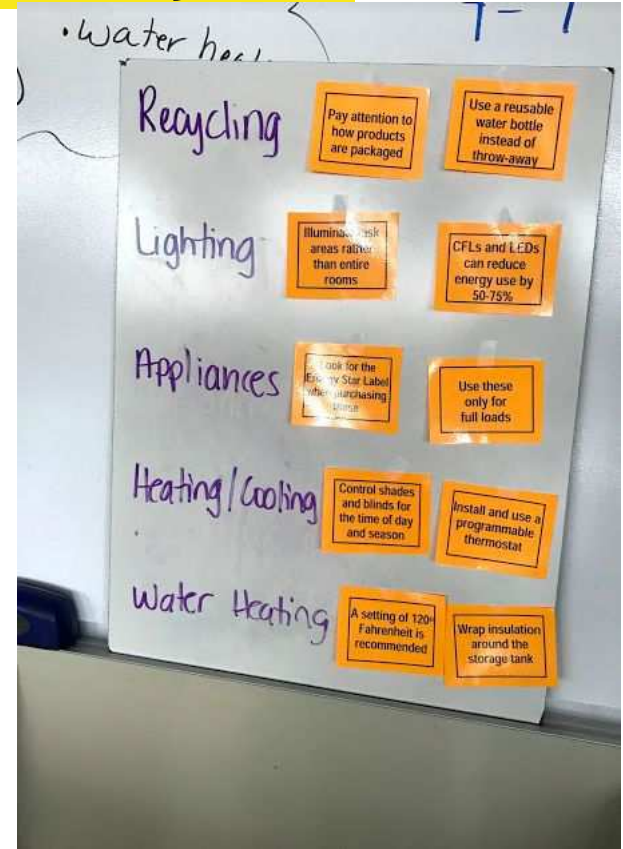 • water
T-1
Recycling
Pay attention to
how products
are packaged
Use a reusable
water bottle
instead of
throw-away
Lighting
areas rather
than entire
rooms
CFLs and LEDs
can reduce
energy use by
50-75%
Appliances
Look for the
Energy Star Label
when purchasing
these
Use these
only for
full loads
Heating/Cooling
Control shades
and blinds for
the time of day
and season
Install and use a
programmable
thermostat
Water Heating
A setting of 120°
Fahrenheit is
recommended
Wrap insulation
around the
storage tank